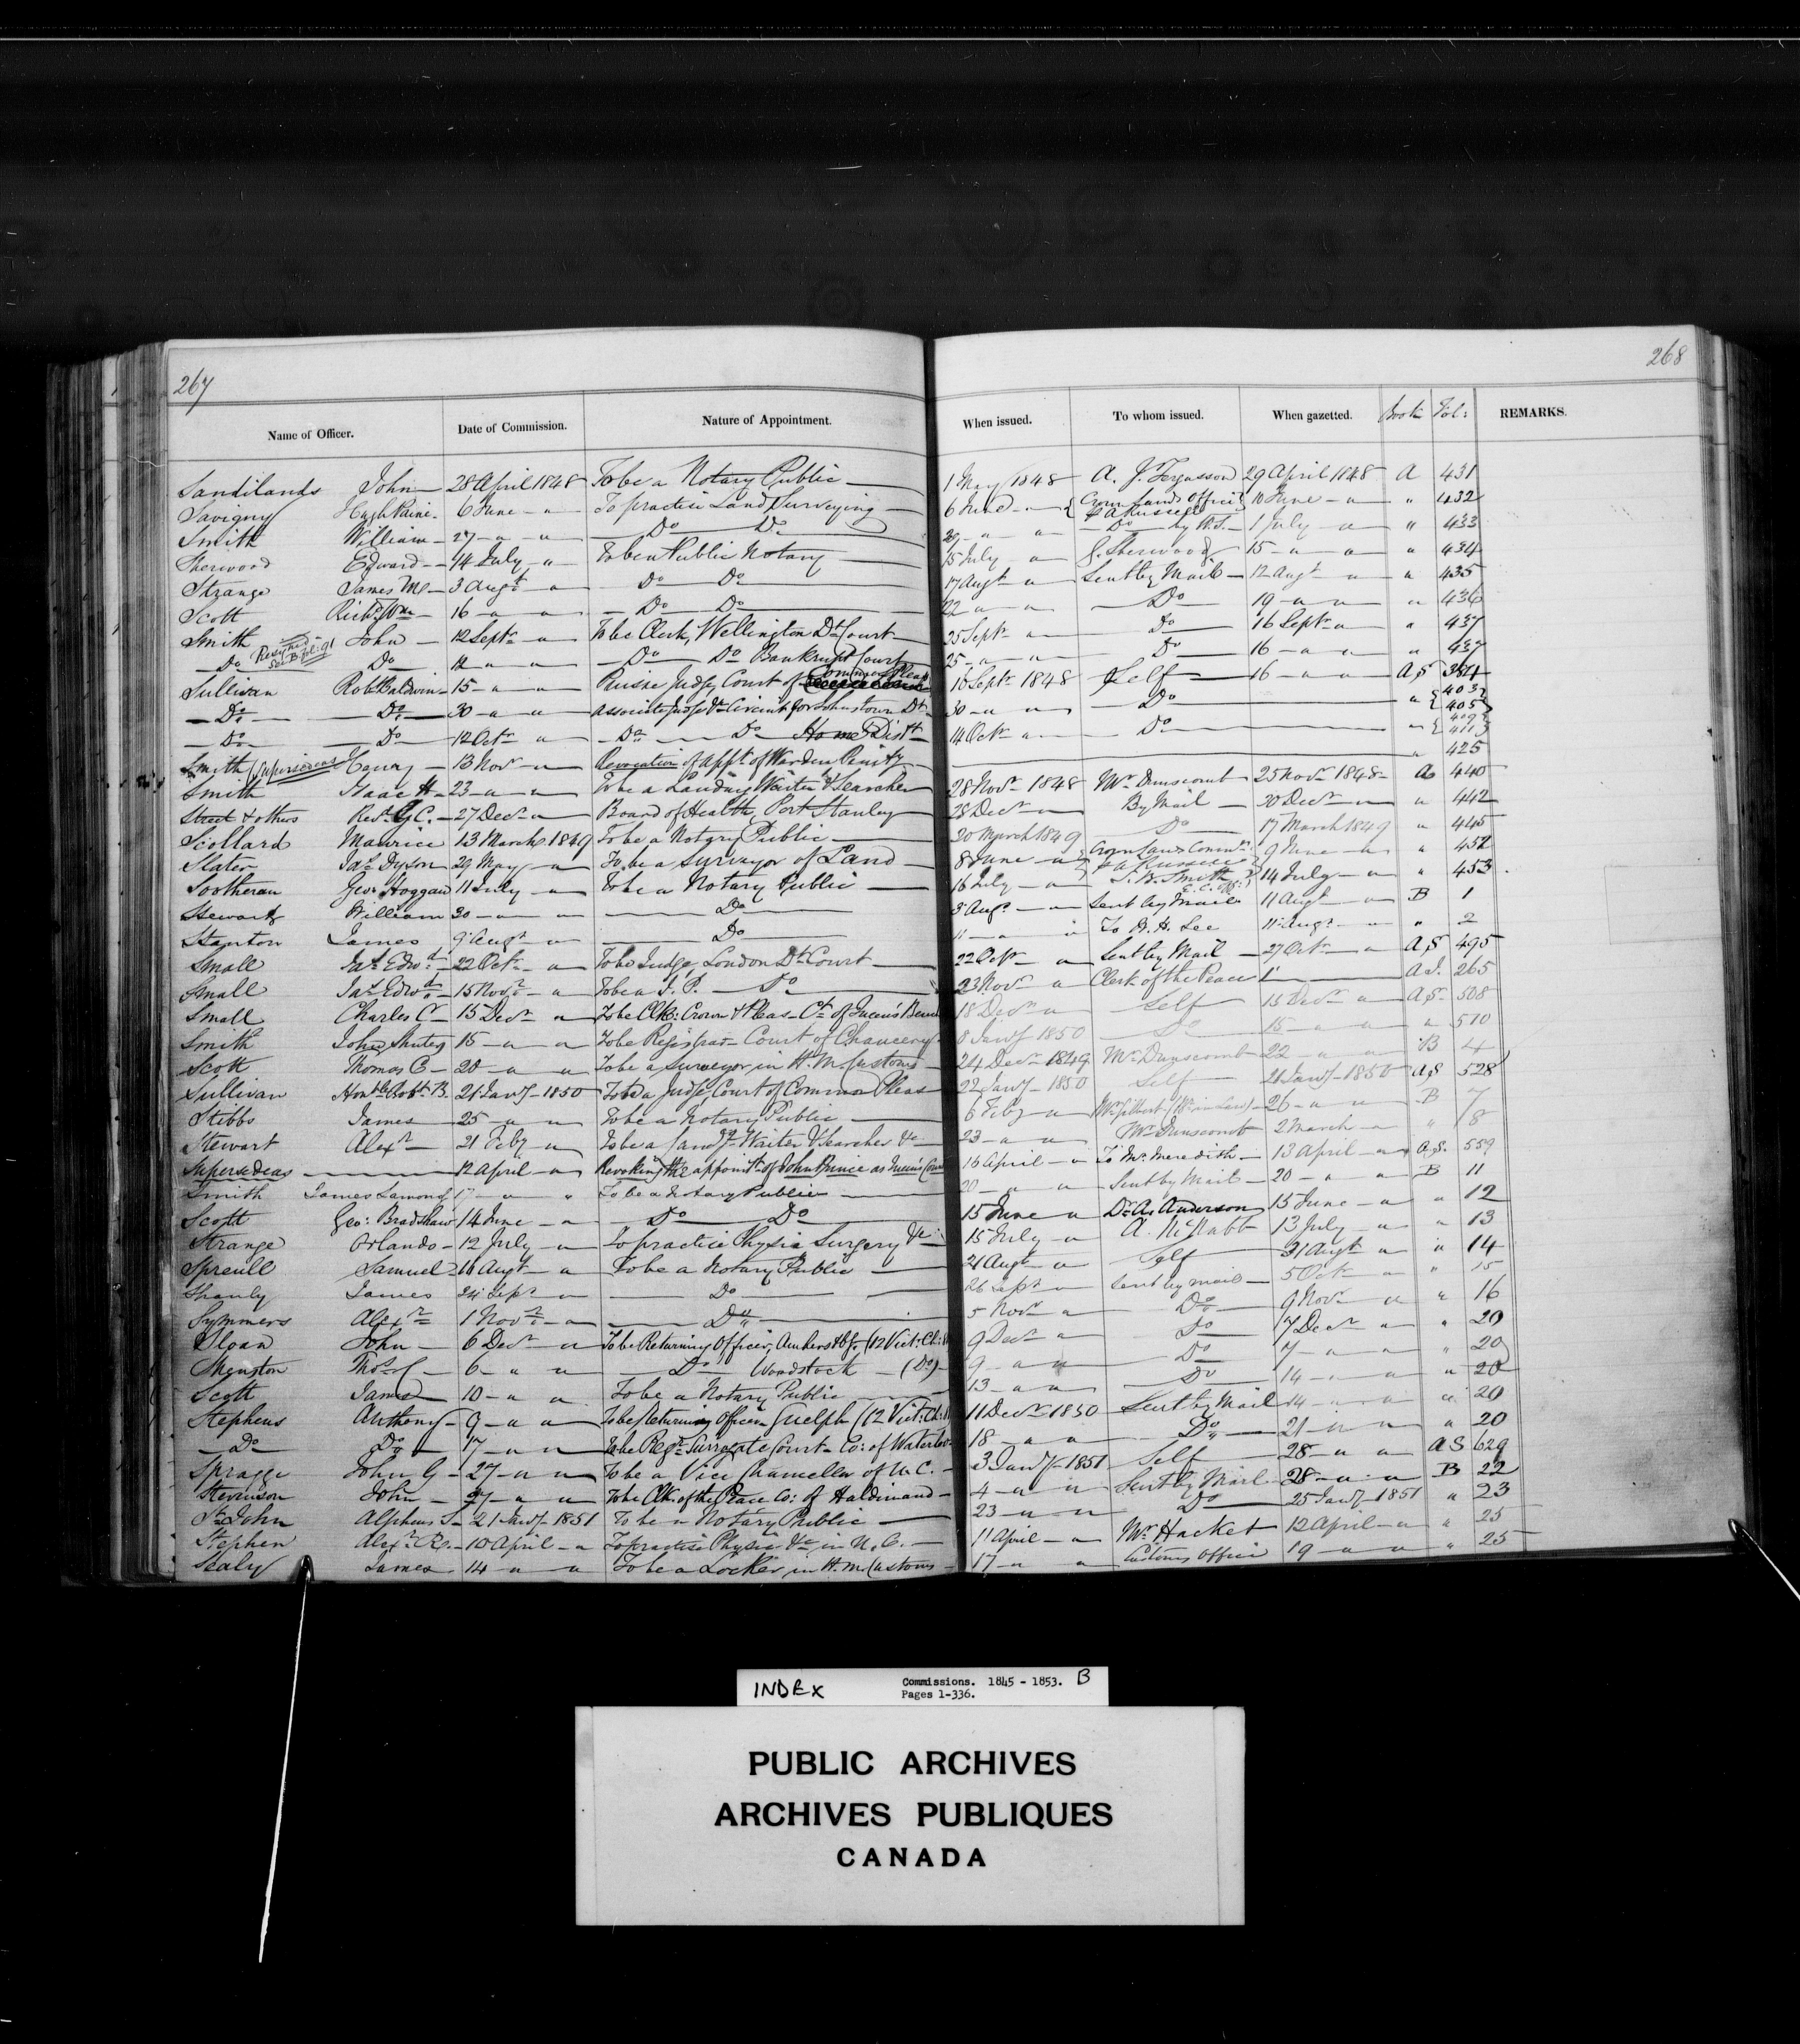 267
268
Name of Officer. Date of Commission. Nature of Appointment. When issued. To whom issued. When gazetted. Book Fol: REMARKS.
Sandilands John 28 April 1848 To be a Notary Public 1 May 1848 A. J. Fergusson 29 April 1848 A 431
Savigny Hugh Paine 6 June " To practice Land Surveying 6 June " Crown Lands Office 10 June " " 432
Smith William 27 " " Do Do " " Do by 1 July " " 433
Sherwood Edward 14 July " To be a Public Notary 15 July " G. Sherwood 15 " " " 434
Strange James 3 Augt " Do Do 17 Augt " Sent by Mail 12 Augt " " 435
Scott Richd Wm 16 " " Do Do 22 " " Do 19 " " " 436
Smith John 12 Septr " To be Clerk, Wellington Dt Court 25 Septr " Do 16 Septr " " 437
Resigned See B fol: 91
Do Do 12 " " Do Do Bankrupt Court 25 " " Do 16 " " " 437
Sullivan Robt Baldwin 15 " " Puisne Judge, Court of Common Pleas 16 Septr 1848 Self 16 " " A S 384
Do Do 30 " " Associate Judge Circuit for Johnstown Dt 30 " " Do " 403 405
Do Do 12 Octr " Do Do Home Distt 14 Octr " Do " 409 411
Smith (Supersedeas) Henry 13 Novr " Revocation of Appt of Warden Penity " 425
Smith Isaac H 23 " " To be a Landing Waiter & Searcher 28 Novr 1848 Mr Dunscomb 25 Novr 1848 A 440
Street & others Revd G. C. 27 Decr " Board of Health, Port Stanley 28 Decr " By Mail 30 Decr " " 442
Scollard Maurice 13 March 1849 To be a Notary Public 20 March 1849 Do 17 March 1849 " 445
Slater Jas Dyson 29 May " To be a Surveyor of Land 8 June " Crown Lands 9 June " " 452
Sootheran Geo: Hoggan 11 July " To be a Notary Public 16 July " Smith 14 July " " 453
Stewart William 30 " " Do 3 Augt " Sent by Mail 11 Augt " B 1
Stanton James 9 Augt " Do 11 " " To W. H. Lee 11 Augt " " 2
Small Jas Edwd 22 Octr " To be Judge, London Dt Court 22 Octr " Sent by Mail 27 Octr " A S 495
Small Jas Edwd 15 Novr " To be a J. P. Do 23 Novr " Clerk of the Peace A J. 265
Small Charles C 15 Decr " To be Clk: Crown & Pleas Ct of Queen's Bench 18 Decr " Self 15 Decr " A S 508
Smith John Shuter 15 " " To be Registrar Court of Chancery 8 Jany 1850 Do 15 " " " 510
Scott Thomas C 20 " " To be a Surveyor in H. M. Customs 24 Decr 1849 Mr Dunscomb 22 " " B 4
Sullivan Honble Robt B. 21 Jany 1850 To be a Judge Court of Common Pleas 22 Jany 1850 Self 21 Jany 1850 A S 528
Stibbs James 25 " " To be a Notary Public 6 Feby " Mr Gilbert 26 " " B 7
Stewart Alexr 21 Feby " To be a Landg Waiter & Searcher &c 23 " " Mr Dunscomb 2 March " " 8
Supersedeas 12 April " Revoking the appointt of John Prince as Queen's 16 April " To Mr Meredith 13 April " A S. 559
Smith James Lamond 17 " " To be a Notary Public 20 " " Sent by Mail 20 " " B 11
Scott Geo: Bradshaw 14 June " Do Do 15 June " Dr A. Anderson 15 June " " 12
Strange Orlando 12 July " To practice Physic Surgery &c 15 July " A. McNabb 13 July " " 13
Spreull Samuel 16 Augt " To be a Notary Public 21 Augt " Self 31 Augt " " 14
Shanly James 24 Septr " Do 26 Septr " Sent by mail 5 Octr " " 15
Symmers Alexr 1 Novr " Do 5 Novr " Do 9 Novr " " 16
Sloan John 6 Decr " To be Returning Officer, Amherstbg. (12 Vict: Ch: 9 Decr " Do 7 Decr " " 20
Shenston Thos 6 " " Do Woodstock (Do) 9 " " Do 7 " " " 20
Scott James 10 " " To be a Notary Public 13 " " Do 14 " " " 20
Stephens Anthony 9 " " To be Returning Officer Guelph (12 Vict: Ch: 11 Decr 1850 Sent by Mail 14 " " " 20
Do Do 17 " " To be Regr Surrogate Court Co: of Waterloo 18 " " Do 21 " " " 20
Spragge John G 27 " " To be a Vice Chancellor of U. C. 3 Jany 1851 Self 28 " " A S 629
Stevenson John 27 " " To be Clk. of the Peace Co: of Haldimand 4 " " Sent by Mail 28 " " B 22
St John Alpheus S. 21 Jany 1851 To be a Notary Public 23 " " Do 25 Jany 1851 " 23
Stephen Alexr 10 April " To practice Physic &c in U. C. 11 April " Mr Hacket 12 April " " 25
Sealy James 14 " " To be a Locker in H. M. Customs 17 " " Customs Office 19 " " " 25
INDEX Commissions. 1845 - 1853. B
Pages 1-336.
PUBLIC ARCHIVES
ARCHIVES PUBLIQUES
CANADA